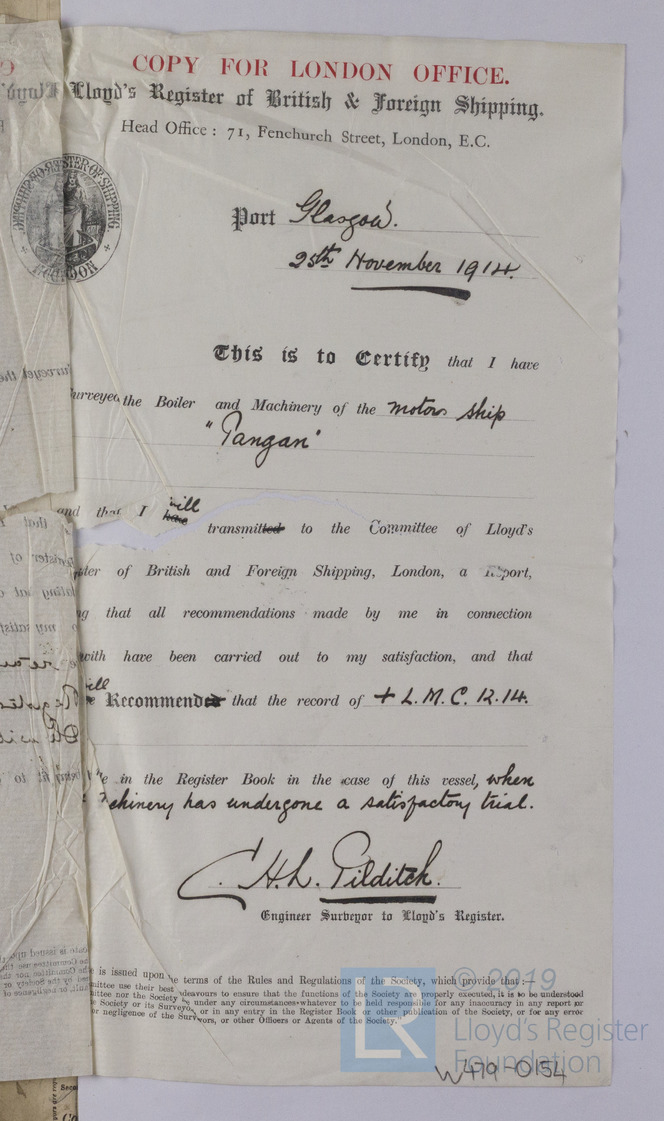 COPY FOR LONDON OFFICE.
Lloyd's Register of British & Foreign Shipping.
Head Office: 71, Fenchurch Street, London, E.C.
LONDON
Port Glasgow.
25th November 1914.
This is to Certify that I have
Surveyed the Boiler and Machinery of the motor ship
"Pangan"
and that I have will transmitted to the Committee of Lloyd's
ster of British and Foreign Shipping, London, a Report,
ng that all recommendations made by me in connection
with have been carried out to my satisfaction, and that
will Recommended that the record of + L.M.C. 12.14.
e in the Register Book in the case of this vessel, when
chinery has undergone a satisfactory trial.
C. H. L. Pilditch.
Engineer Surveyor to Lloyd's Register.
e is issued upon the terms of the Rules and Regulations of the Society, which provide that :—
mittee use their best deavours to ensure that the functions of the Society are properly executed, it is to be understood
ittee nor the Society under any circumstances whatever to be held responsible for any inaccuracy in any report or
Society or its Surveyo or in any entry in the Register Book or other publication of the Society, or for any error
or negligence of the Surveyors, or other Officers or Agents of the Society."
© 2019
LR Lloyd's Register
Foundation
W479-0154